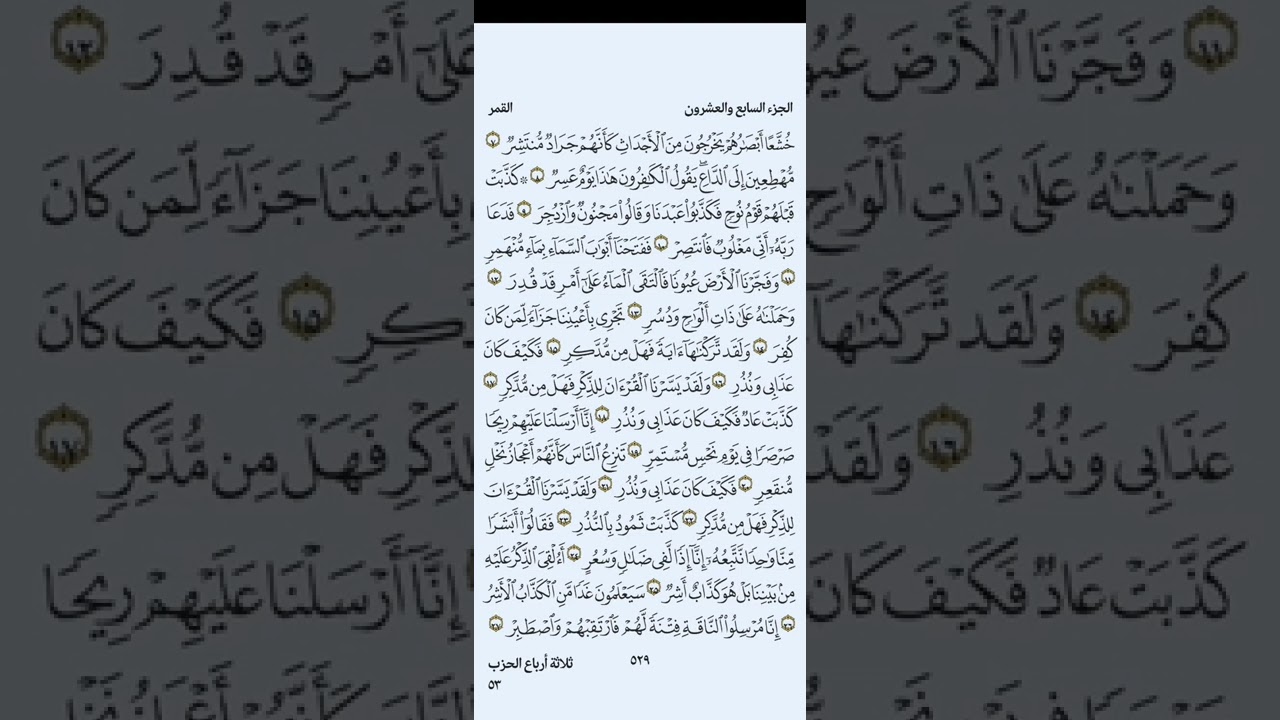 الجزء السابع والعشرون
القمر
خُشَّعًا أَبْصَٰرُهُمْ يَخْرُجُونَ مِنَ ٱلْأَجْدَاثِ كَأَنَّهُمْ جَرَادٌ مُّنتَشِرٌ ٧
مُّهْطِعِينَ إِلَى ٱلدَّاعِ ۖ يَقُولُ ٱلْكَٰفِرُونَ هَٰذَا يَوْمٌ عَسِرٌ ٨ ۞ كَذَّبَتْ
قَبْلَهُمْ قَوْمُ نُوحٍ فَكَذَّبُوا۟ عَبْدَنَا وَقَالُوا۟ مَجْنُونٌ وَٱزْدُجِرَ ٩ فَدَعَا
رَبَّهُۥٓ أَنِّى مَغْلُوبٌ فَٱنتَصِرْ ١٠ فَفَتَحْنَآ أَبْوَٰبَ ٱلسَّمَآءِ بِمَآءٍ مُّنْهَمِرٍ
١١ وَفَجَّرْنَا ٱلْأَرْضَ عُيُونًا فَٱلْتَقَى ٱلْمَآءُ عَلَىٰٓ أَمْرٍ قَدْ قُدِرَ ١٢
وَحَمَلْنَٰهُ عَلَىٰ ذَاتِ أَلْوَٰحٍ وَدُسُرٍ ١٣ تَجْرِى بِأَعْيُنِنَا جَزَآءً لِّمَن كَانَ
كُفِرَ ١٤ وَلَقَد تَّرَكْنَٰهَآ ءَايَةً فَهَلْ مِن مُّدَّكِرٍ ١٥ فَكَيْفَ كَانَ
عَذَابِى وَنُذُرِ ١٦ وَلَقَدْ يَسَّرْنَا ٱلْقُرْءَانَ لِلذِّكْرِ فَهَلْ مِن مُّدَّكِرٍ ١٧
كَذَّبَتْ عَادٌ فَكَيْفَ كَانَ عَذَابِى وَنُذُرِ ١٨ إِنَّآ أَرْسَلْنَا عَلَيْهِمْ رِيحًا
صَرْصَرًا فِى يَوْمِ نَحْسٍ مُّسْتَمِرٍّ ١٩ تَنزِعُ ٱلنَّاسَ كَأَنَّهُمْ أَعْجَازُ نَخْلٍ
مُّنقَعِرٍ ٢٠ فَكَيْفَ كَانَ عَذَابِى وَنُذُرِ ٢١ وَلَقَدْ يَسَّرْنَا ٱلْقُرْءَانَ
لِلذِّكْرِ فَهَلْ مِن مُّدَّكِرٍ ٢٢ كَذَّبَتْ ثَمُودُ بِٱلنُّذُرِ ٢٣ فَقَالُوٓا۟ أَبَشَرًا
مِّنَّا وَٰحِدًا نَّتَّبِعُهُۥٓ إِنَّآ إِذًا لَّفِى ضَلَٰلٍ وَسُعُرٍ ٢٤ أَءُلْقِىَ ٱلذِّكْرُ عَلَيْهِ
مِنۢ بَيْنِنَا بَلْ هُوَ كَذَّابٌ أَشِرٌ ٢٥ سَيَعْلَمُونَ غَدًا مَّنِ ٱلْكَذَّابُ ٱلْأَشِرُ
٢٦ إِنَّا مُرْسِلُوا۟ ٱلنَّاقَةِ فِتْنَةً لَّهُمْ فَٱرْتَقِبْهُمْ وَٱصْطَبِرْ ٢٧
٥٢٩
ثلاثة أرباع الحزب
٥٣